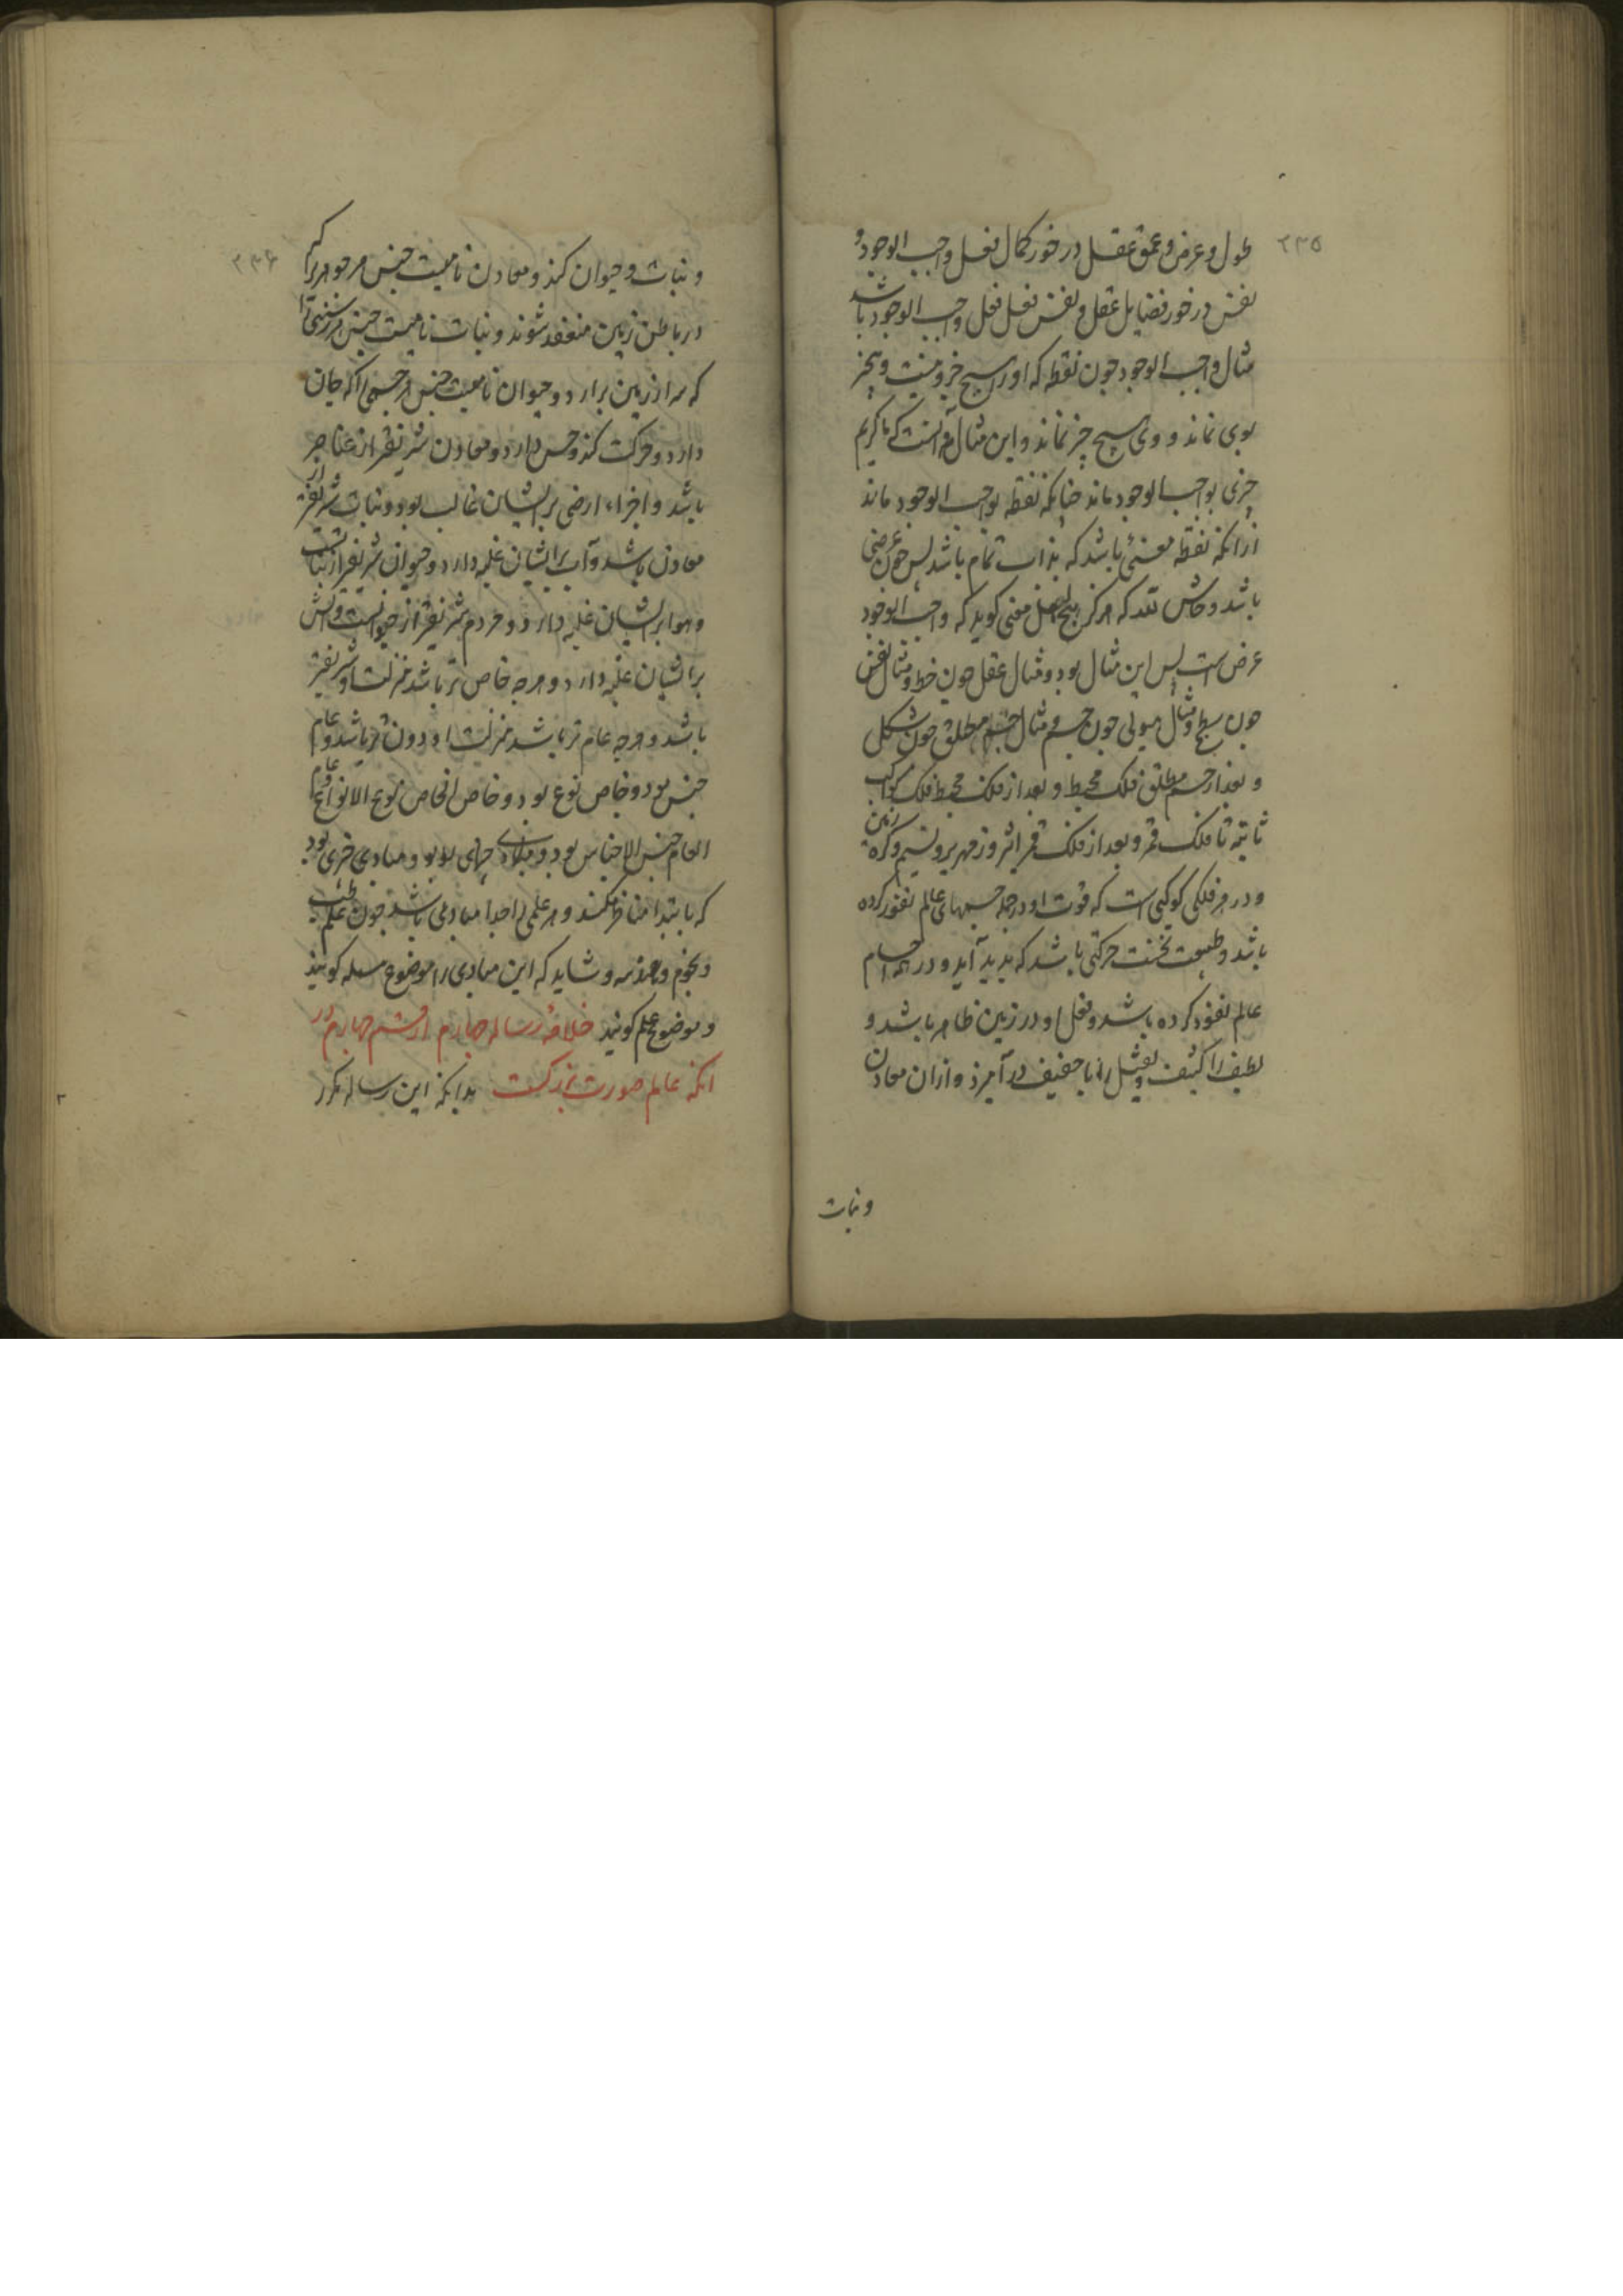 ۲۳۵
طول و عرض و عمق عقل در خور کمال فعل واجب الوجود و
نفس در خور فضایل عقل و نفس فعل فعل واجب الوجود باشد
مثال واجب الوجود چون نقطه که او را هیچ جزو نیست و بچیز
بوی نماند و وی بهیچ چیز نماند و این مثال نه آنست که ما کریم
چیزی بواجب الوجود ماند چنانکه نقطه بواجب الوجود ماند
ازانکه نقطه معنئ باشد که بذات تمام باشد پس چون عرضی
باشد و حاش لله که هرکز هیچ اهل معنی کوید که واجب الوجود
عرض است پس این مثال بود و مثال عقل چون خط و مثال نفس
چون سطح و مثال هیولی چون جسم و مثال جسم مطلق چون شکل
و بعد از جسم مطلق فلک محیط و بعد از فلک محیط فلک کواکب
ثابته تا فلک قمر و بعد از فلک قمر اثیر و زمهریر و نسیم و کره زمین
و در هر فلکی کوکبی است که قوت او در جمله جسمهای عالم نفوذ کرده
باشد و طبیعت نخست حرکتی باشد که پدید آید و در همه اجسام
عالم نفوذ کرده باشد و فعل او در زمین ظاهر باشد و
لطیف را کثیف و ثقیل را با خفیف در آمیزد و ازان معادن
و نبات
۲۳۶
و نبات و حیوان کند و معادن نامیست جنس هر جوهر را که
در باطن زمین منعقد شوند و نبات نامیست جنس هر رستنی را
که سر از زمین برارد و حیوان نامیست جنس هر جسمی را که جان
دارد و حرکت کند و حس دارد و معادن شریفتر از عناصر
باشد و اجزاء ارضی بر ایشان غالب بود و نبات شریفتر از
معادن باشد و آب بر ایشان غلبه دارد و حیوان شریفتر از نباتست
و هوا بر ایشان غلبه دارد و مردم شریفتر از حیوانست و آتش
بر ایشان غلبه دارد و هرچه خاص تر باشد منزلت او شریفتر
باشد و هرچه عام تر باشد منزلت او دون تر باشد و عام
جنس بود و خاص نوع بود و خاص الخاص نوع الانواع و عام
العام جنس الاجناس بود و مبادی چیزی بود و مبادی چیزی بود
که بابتدا آغاز کنند و هر علمی را جدا مبادی باشد چون علم طب
و نجوم و هندسه و شاید که این مبادی را موضوع مسله کویند
و موضوع علم کویند خلاصه رساله چهارم از قسم چهارم در
انکه عالم صورت بزرکست بدانکه این رساله مکرر